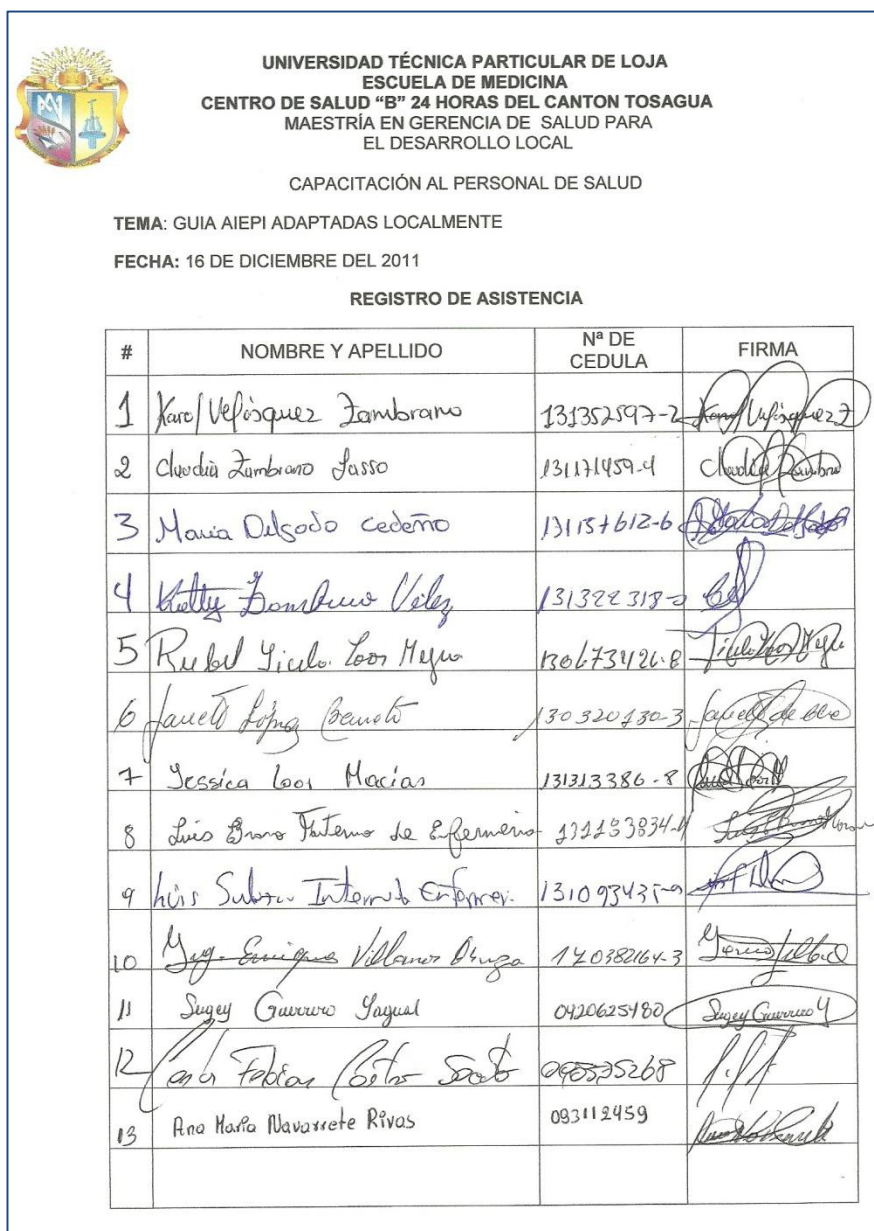 UNIVERSIDAD TÉCNICA PARTICULAR DE LOJA
ESCUELA DE MEDICINA
CENTRO DE SALUD “B” 24 HORAS DEL CANTON TOSAGUA
MAESTRÍA EN GERENCIA DE SALUD PARA
EL DESARROLLO LOCAL
CAPACITACIÓN AL PERSONAL DE SALUD
TEMA: GUIA AIEPI ADAPTADAS LOCALMENTE
FECHA: 16 DE DICIEMBRE DEL 2011
REGISTRO DE ASISTENCIA
# NOMBRE Y APELLIDO Nª DE CEDULA FIRMA
1 Karol Velásquez Zambrano 131352597-2 Karol Velásquez Z
2 Claudia Zambrano Lasso 131171459-4 Claudia Zambra
3 Maria Delgado cedeño 131157612-6
4 Ketty Zambrano Vélez 131322318-0
5 Loor 130673426-8
6 Janeth López 130320130-3
7 Jessica Loor Macías 131313386-8
8 Luis Bravo Interno de Enfermeria
9 Luis Interno Enfermer.
10 Enrique 170382164-3
11 Sugey Guerrero Yagual 0420625480 Sugey Guerrero Y
12 Fabian
13 Ana María Navarrete Rivas 093112459